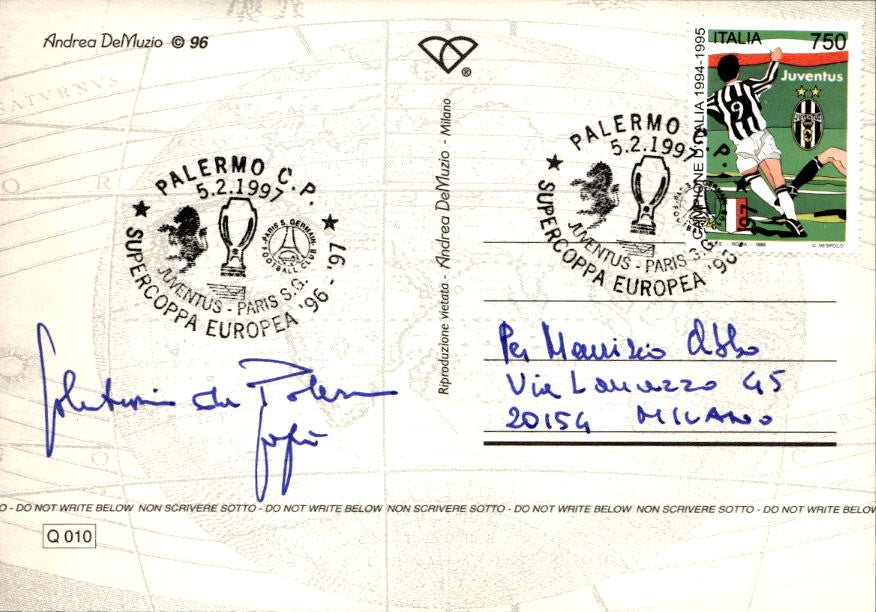 Andrea DeMuzio © 96
®
Riproduzione vietata - Andrea DeMuzio - Milano
CAMPIONE D'ITALIA 1994-1995
ITALIA 750
Juventus
9
ROMA - 1995
U. NESPOLO
PALERMO C.P.
5.2.1997
PARIS S. GERMAIN
FOOTBALL CLUB
JUVENTUS - PARIS S.G.
SUPERCOPPA EUROPEA '96 - '97
PALERMO C.P.
5.2.1997
JUVENTUS - PARIS S.G.
SUPERCOPPA EUROPEA '96 -
da Palermo
Per Maurizio
Via 45
20154 MILANO
- DO NOT WRITE BELOW NON SCRIVERE SOTTO - DO NOT WRITE BELOW NON SCRIVERE SOTTO - DO NOT WRITE BELOW NON SCRIVERE SOTTO - DO NOT WRITE BELOW
Q 010